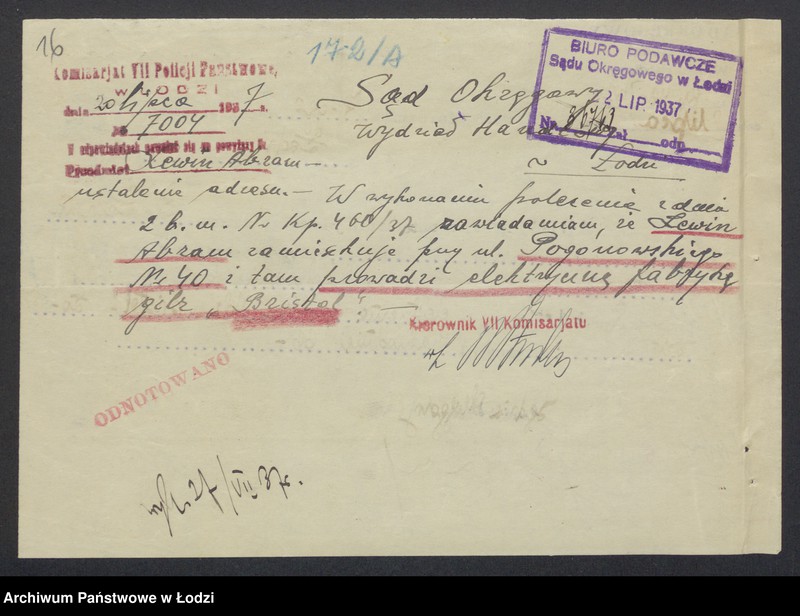 16
172/A
Komisarjat VII Policji Państwowej
w ŁODZI
dnia 20 lipca 1937 r.
№ 7004
W odpowiedziach powołać się na powyższy №
Lewin Abram –
ustalenie adresu. –
Sąd Okręgowy
Wydział
w Łodzi
BIURO PODAWCZE
Sądu Okręgowego w Łodzi
2 LIP 1937
Nr.
zał. odp.
W wykonaniu polecenia z dnia
2 b.m. Nr Kp. 460/37 zawiadamiam, że Lewin
Abram zamieszkuje przy ul. Pogonowskiego
Nr 40 i tam prowadzi elektryczną fabrykę
gilz „Bristol" –
Kierownik VII Komisarjatu
ODNOTOWANO
27/VII 37r.
Archiwum Państwowe w Łodzi